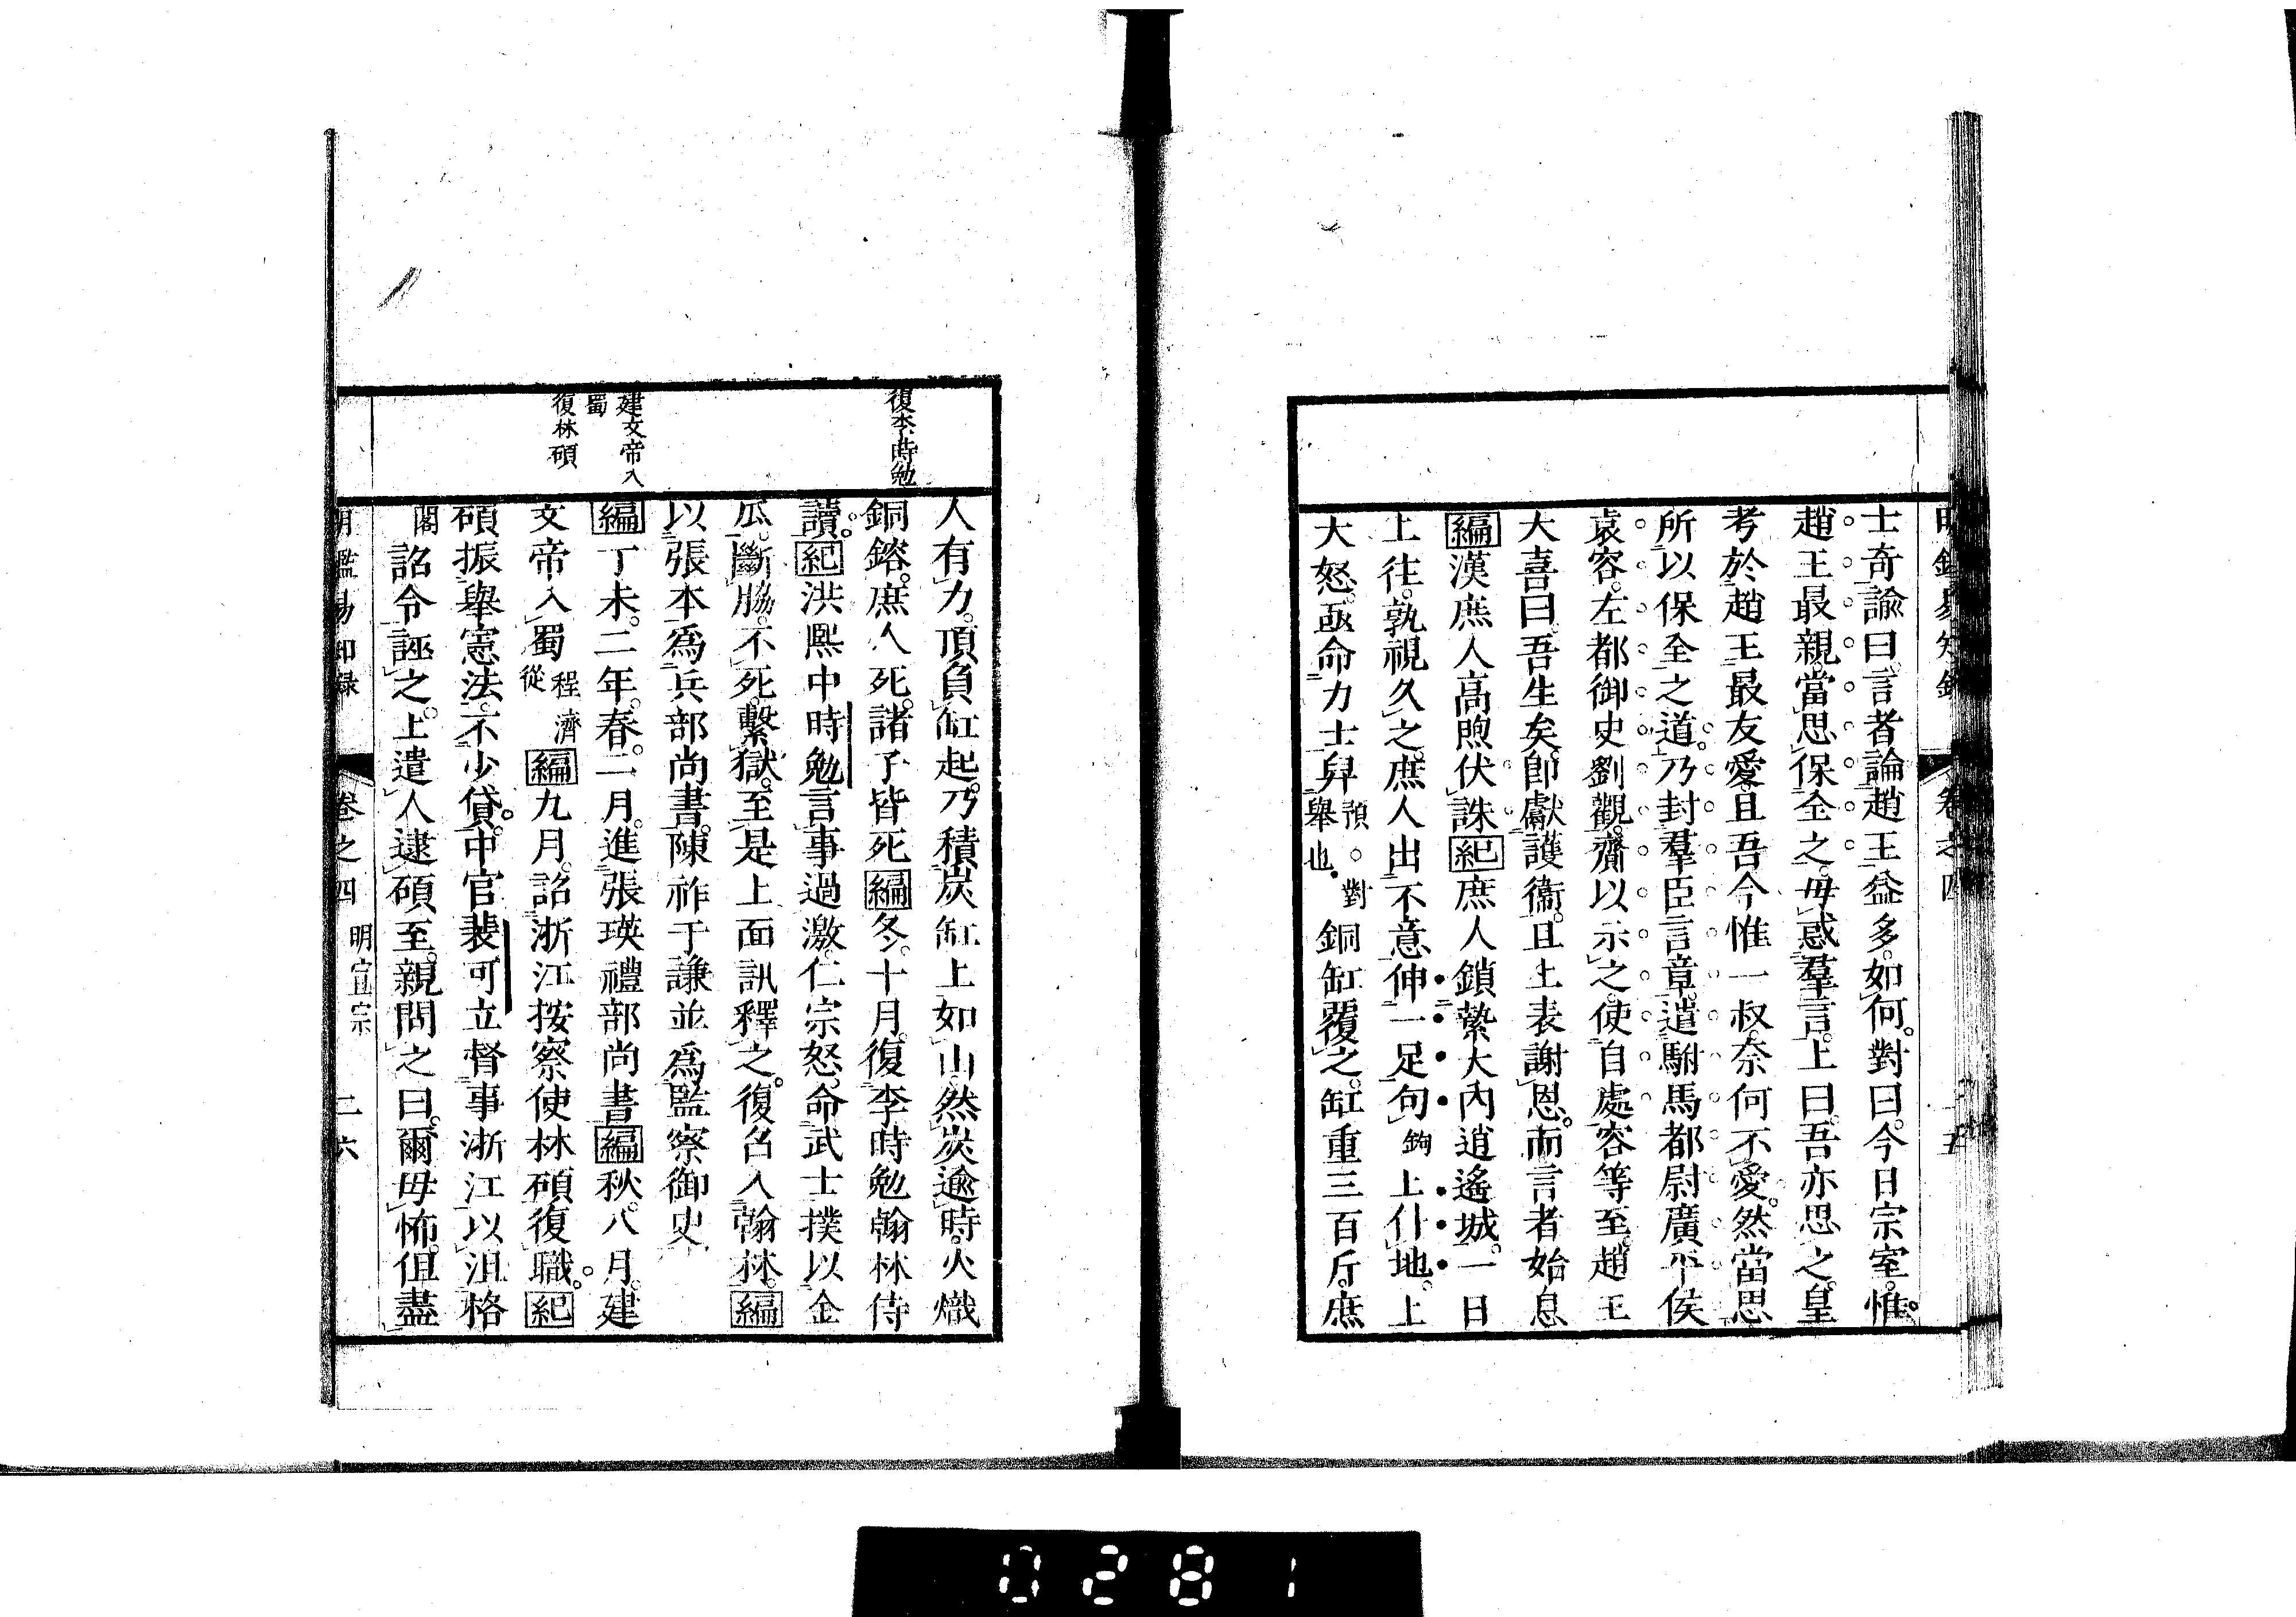 士奇諭曰。言者論趙王益多。如何。對曰。今日宗室。惟
趙王最親。當思保全之。毋惑羣言。上曰。吾亦思之。皇
考於趙王最友愛。且吾今惟一叔。奈何不愛。然當思
所以保全之道。乃封羣臣言章。遣駙馬都尉廣平侯
袁容。左都御史劉觀。齎以示之。使自處。容等至。趙王
大喜曰。吾生矣。卽獻護衞。且上表謝恩。而言者始息
編漢庶人高煦伏誅紀庶人鎖縶大內逍遙城。一日
上往。孰視久之。庶人出不意伸一足句鉤上仆地。上
大怒。亟命力士舁預。對舉也。銅缸覆之。缸重三百斤。庶
復李時勉
建文帝入
蜀
復林碩
人有力。頂負缸起。乃積炭缸上如山。然炭逾時。火熾
銅鎔。庶人死。諸子皆死編冬。十月。復李時勉翰林侍
讀。紀洪熙中時勉言事過激。仁宗怒。命武士撲以金
瓜。斷脇。不死。繫獄。至是上面訊釋之。復召入翰林。編
以張本爲兵部尚書。陳祚于謙並爲監察御史
編丁未。二年。春。二月。進張瑛禮部尚書編秋。八月。建
文帝入蜀程濟從編九月。詔浙江按察使林碩復職。紀
碩振舉憲法。不少貸。中官裴可立督事浙江。以沮格
閣詔令誣之。上遣人逮碩至。親問之曰。爾毋怖。但盡
明鑑易知錄 卷之四 明宣宗 二六